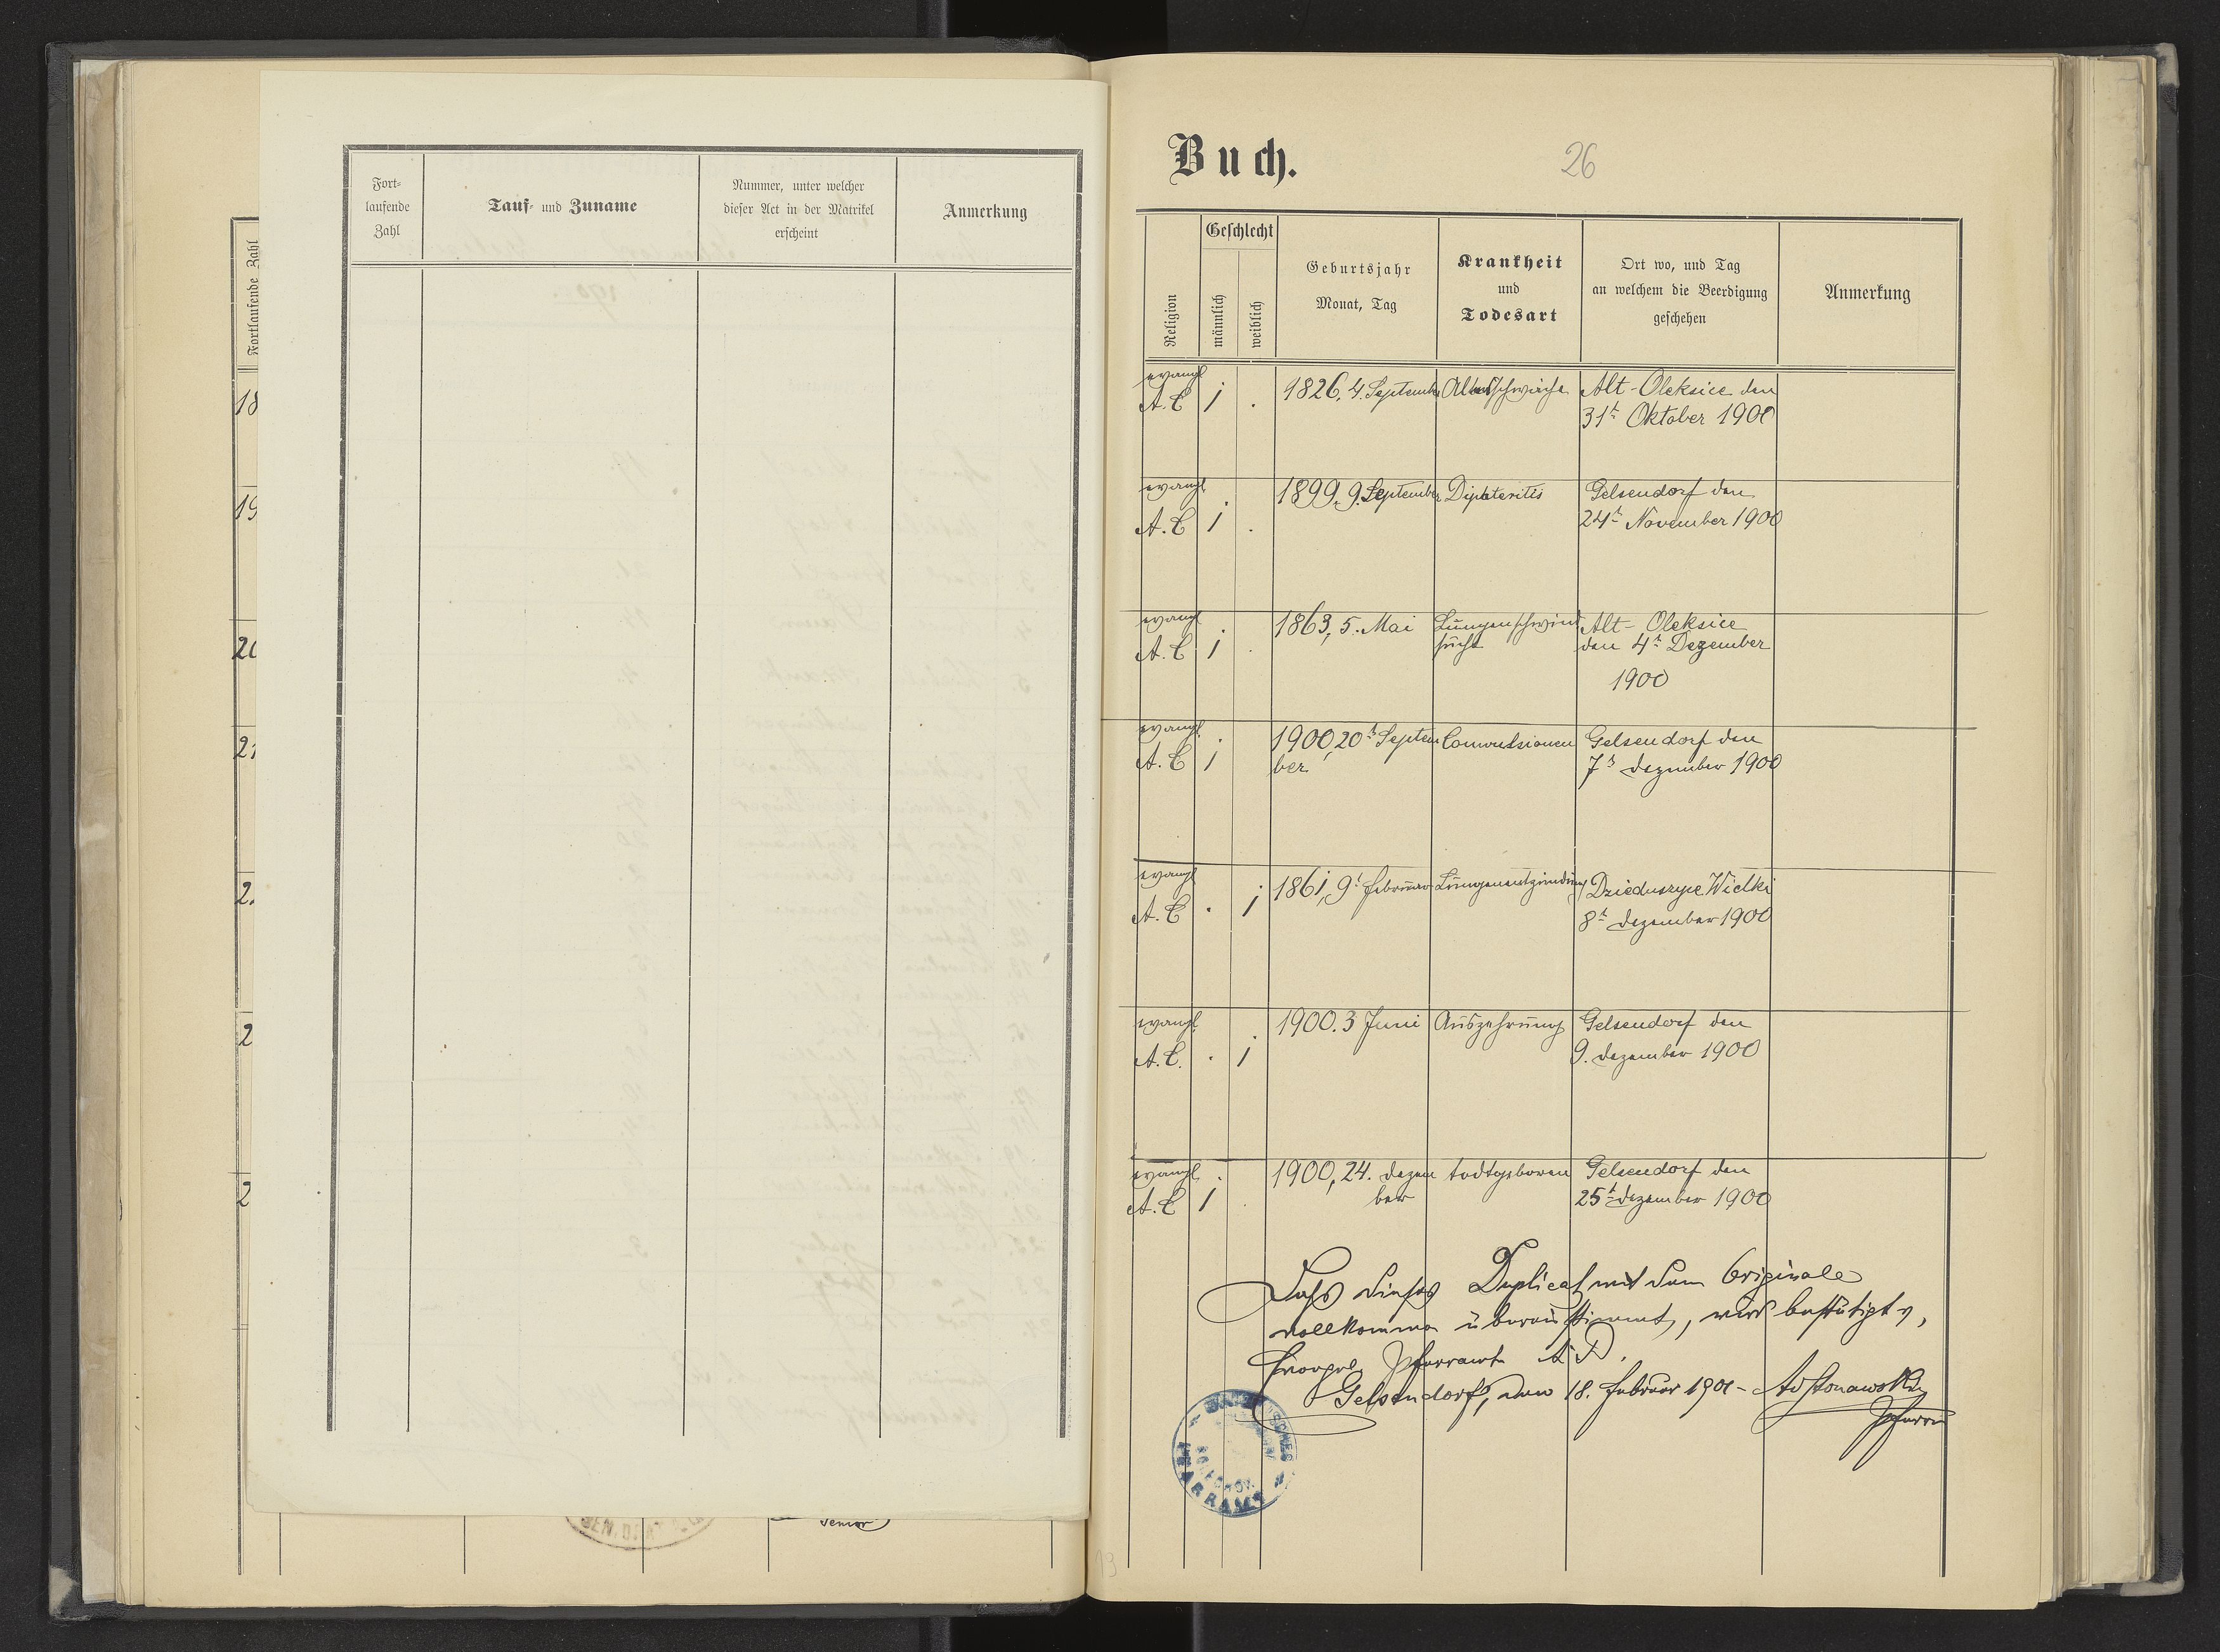 Fort-
laufende
Zahl
Tauf- und Zuname
Nummer, unter welcher
dieser Act in der Matrikel
erscheint
Anmerkung
Fortlaufende Zahl
18
19
Senior
Buch.
26
Religion
Geschlecht
männlich
weiblich
Geburtsjahr
Monat, Tag
Krankheit
und
Todesart
Ort wo, und Tag
an welchem die Beerdigung
geschehen
Anmerkung
evangl
A. C
1826, 4. September
Altersschwäche
Alt-Oleksice den
31t Oktober 1900
evangl
A. C
1899, 9. September
Diphteritis
Gelsendorf den
24t November 1900
evangl
A. C
1863, 5. Mai
Lungenschwind
sucht
Alt-Oleksice
den 4t Dezember
1900
evangl.
A. C
1900, 20t Septem
ber
Convulsionen
Gelsendorf den
7t Dezember 1900
evangl
A. C
1861, 9t Februar
Lungenentzündung
Dzieduszyce Wielki
8t Dezember 1900
evangl.
A. C.
1900. 3 Juni
Auszehrung
Gelsendorf den
9. Dezember 1900
evangl.
A. C
1900, 24. Dezem
ber
todtgeboren
Gelsendorf den
25t Dezember 1900
Daß dieses Duplicat mit dem Originale
vollkommen übereinstimmt, wird bestätigt,
Evangel. Pfarramt A. B.
Gelsendorf, den 18. Februar 1901 -
Pfarrer